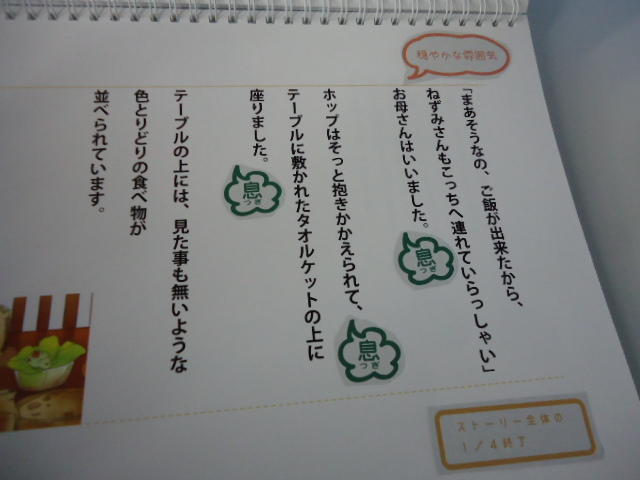 穏やかな雰囲気
「まあそうなの、ご飯が出来たから、
ねずみさんもこっちへ連れていらっしゃい」
お母さんはいいました。
息つぎ
ホップはそっと抱きかかえられて、
息つぎ
テーブルに敷かれたタオルケットの上に
座りました。
息つぎ
テーブルの上には、見た事も無いような
色とりどりの食べ物が
並べられています。
ストーリー全体の
1/4終了